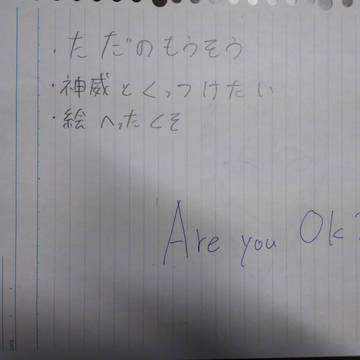 ・ただのもうそう
・神威とくっつけたい
・絵へったくそ
Are you Ok?